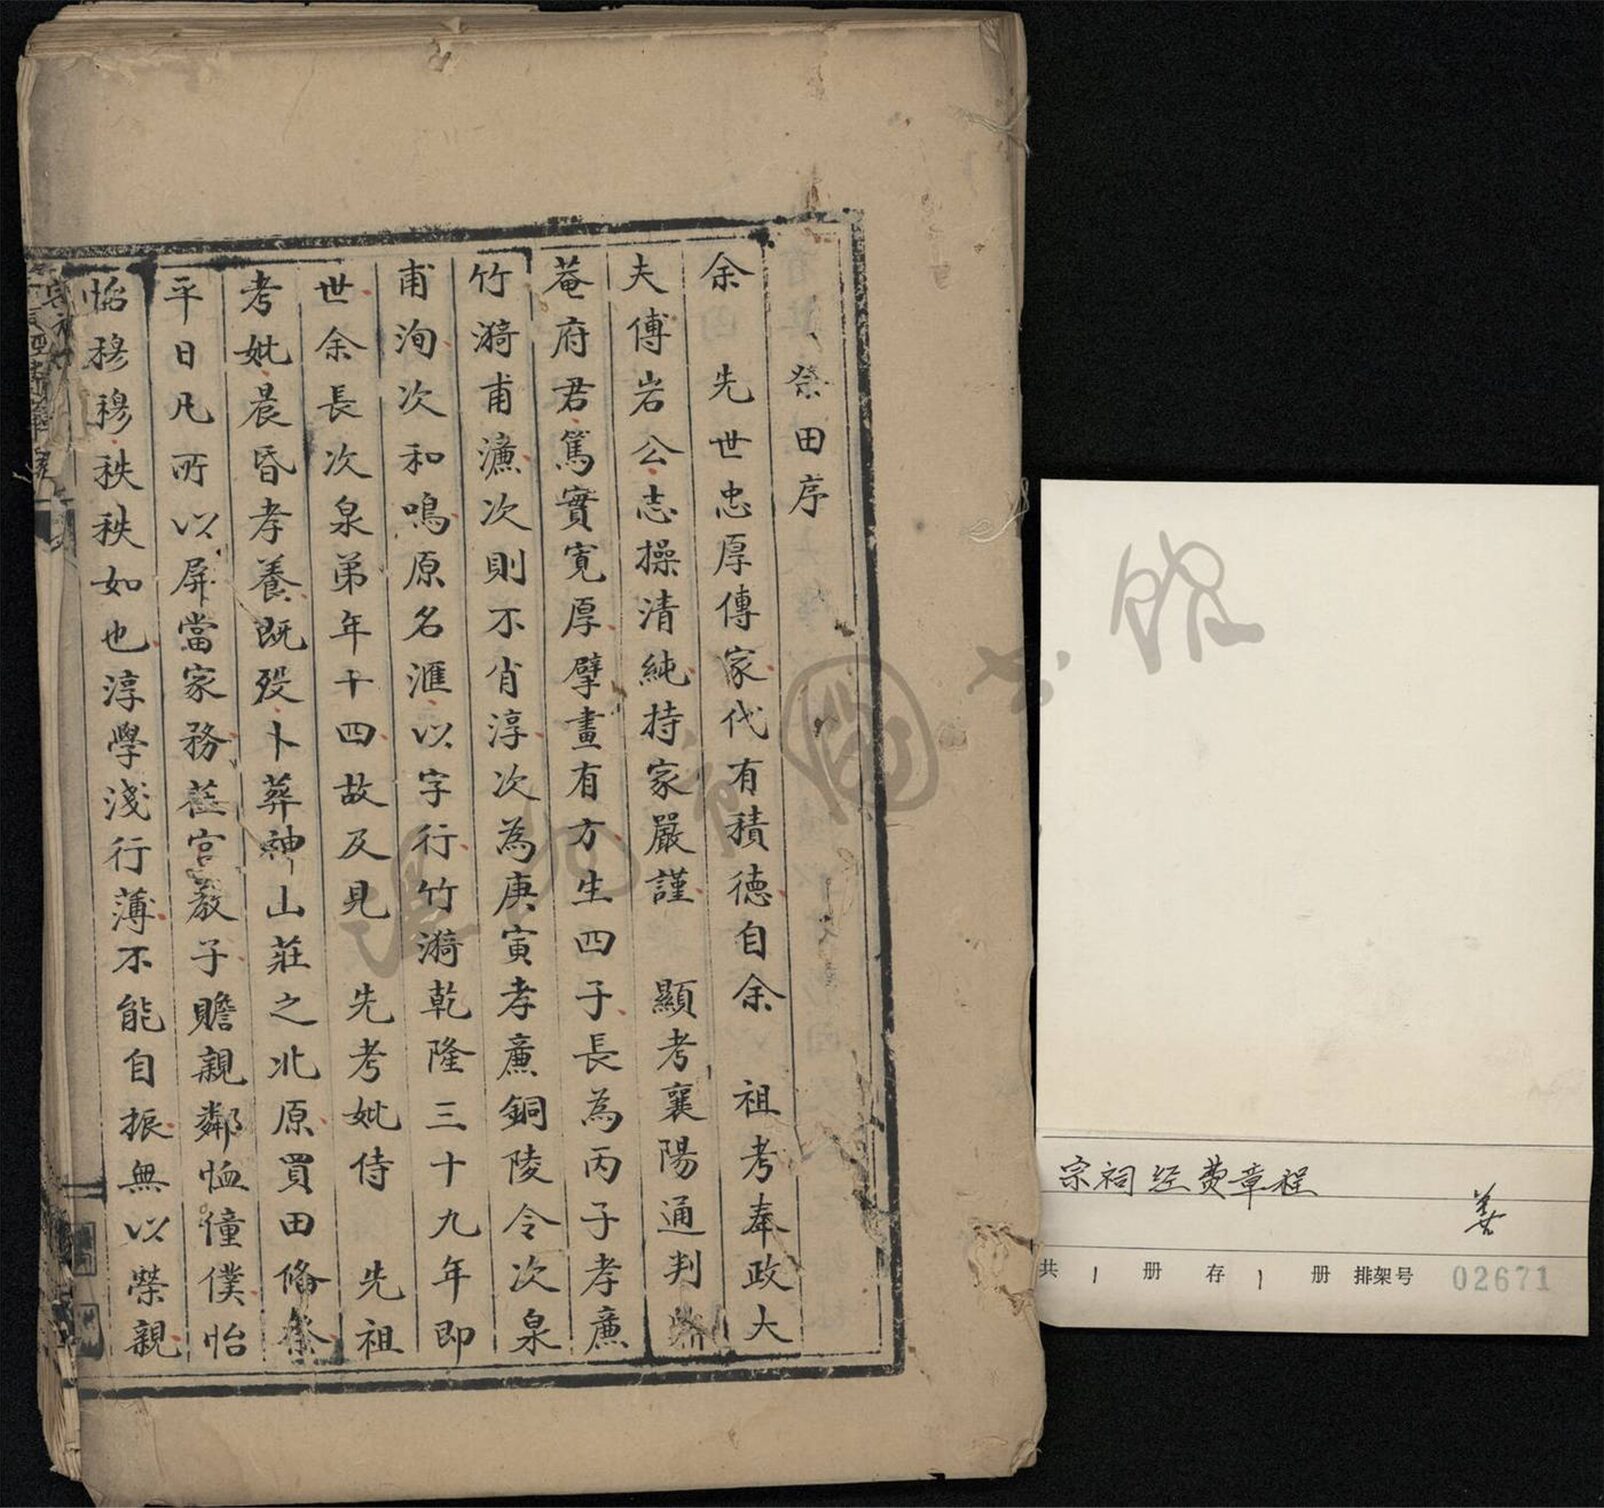 祭田序
余　先世忠厚傳家代有積德自余　祖考奉政大
夫傅岩公志操清純持家嚴謹　顯考襄陽通判
菴府君篤實寬厚擘畫有方生四子長為丙子孝廉
竹漪甫濂次則不肖淳次為庚寅孝廉銅陵令次泉
甫洵次和鳴原名滙以字行竹漪乾隆三十九年即
世余長次泉弟年十四故及見　先考妣侍　先祖
考妣晨昏孝養既歿卜葬神山莊之北原買田脩祭
平日凡所以屏當家務蒞官教子贍親鄰恤僮僕怡
怡穆穆秩秩如也淳學淺行薄不能自振無以榮親
宗祠经费章程
善
共 1 册 存 1 册 排架号 02671